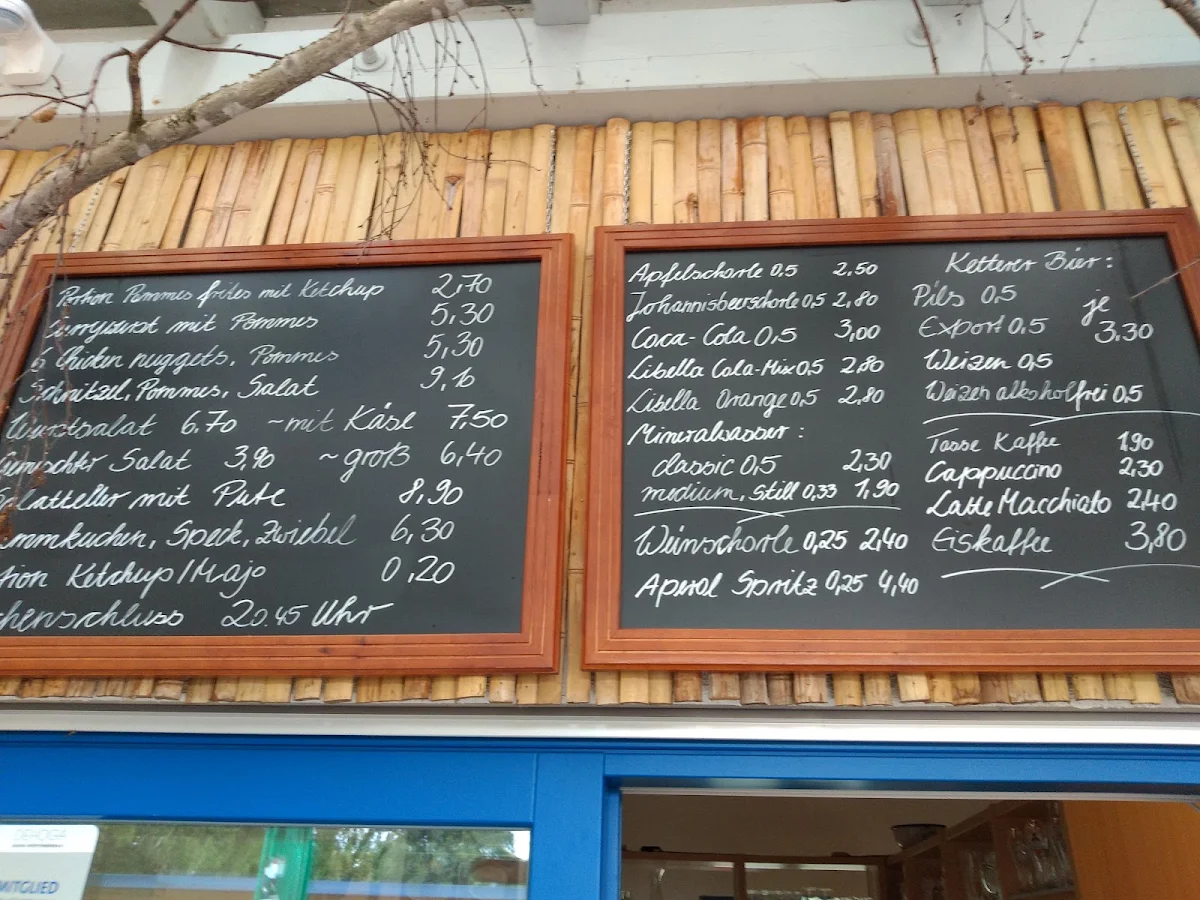 Portion Pommes frites mit Ketchup 2,70
Currywurst mit Pommes 5,30
6 Chicken nuggets, Pommes 5,30
Schnitzel, Pommes, Salat 9,10
Wurstsalat 6.70 ~mit Käse 7,50
Gemischter Salat 3,90 ~groß 6,40
Salatteller mit Pute 8,90
ammkuchen, Speck, Zwiebel 6,30
tion Ketchup/Majo 0,20
chenschluss 20.45 Uhr
Apfelschorle 0,5 2,50
Johannisbeerschorle 0,5 2,80
Coca-Cola 0,5 3,00
Libella Cola-Mix 0,5 2,80
Libella Orange 0,5 2,80
Mineralwasser:
classic 0,5 2,30
medium, still 0,33 1,90
Weinschorle 0,25 2,40
Aperol Spritz 0,25 4,40
Ketterer Bier:
Pils 0,5 je
Export 0,5 3.30
Weizen 0,5
Weizen alkoholfrei 0,5
Tasse Kaffee 1,90
Cappuccino 2,30
Latte Macchiato 2,40
Eiskaffee 3,80
DEHOGA
MITGLIED